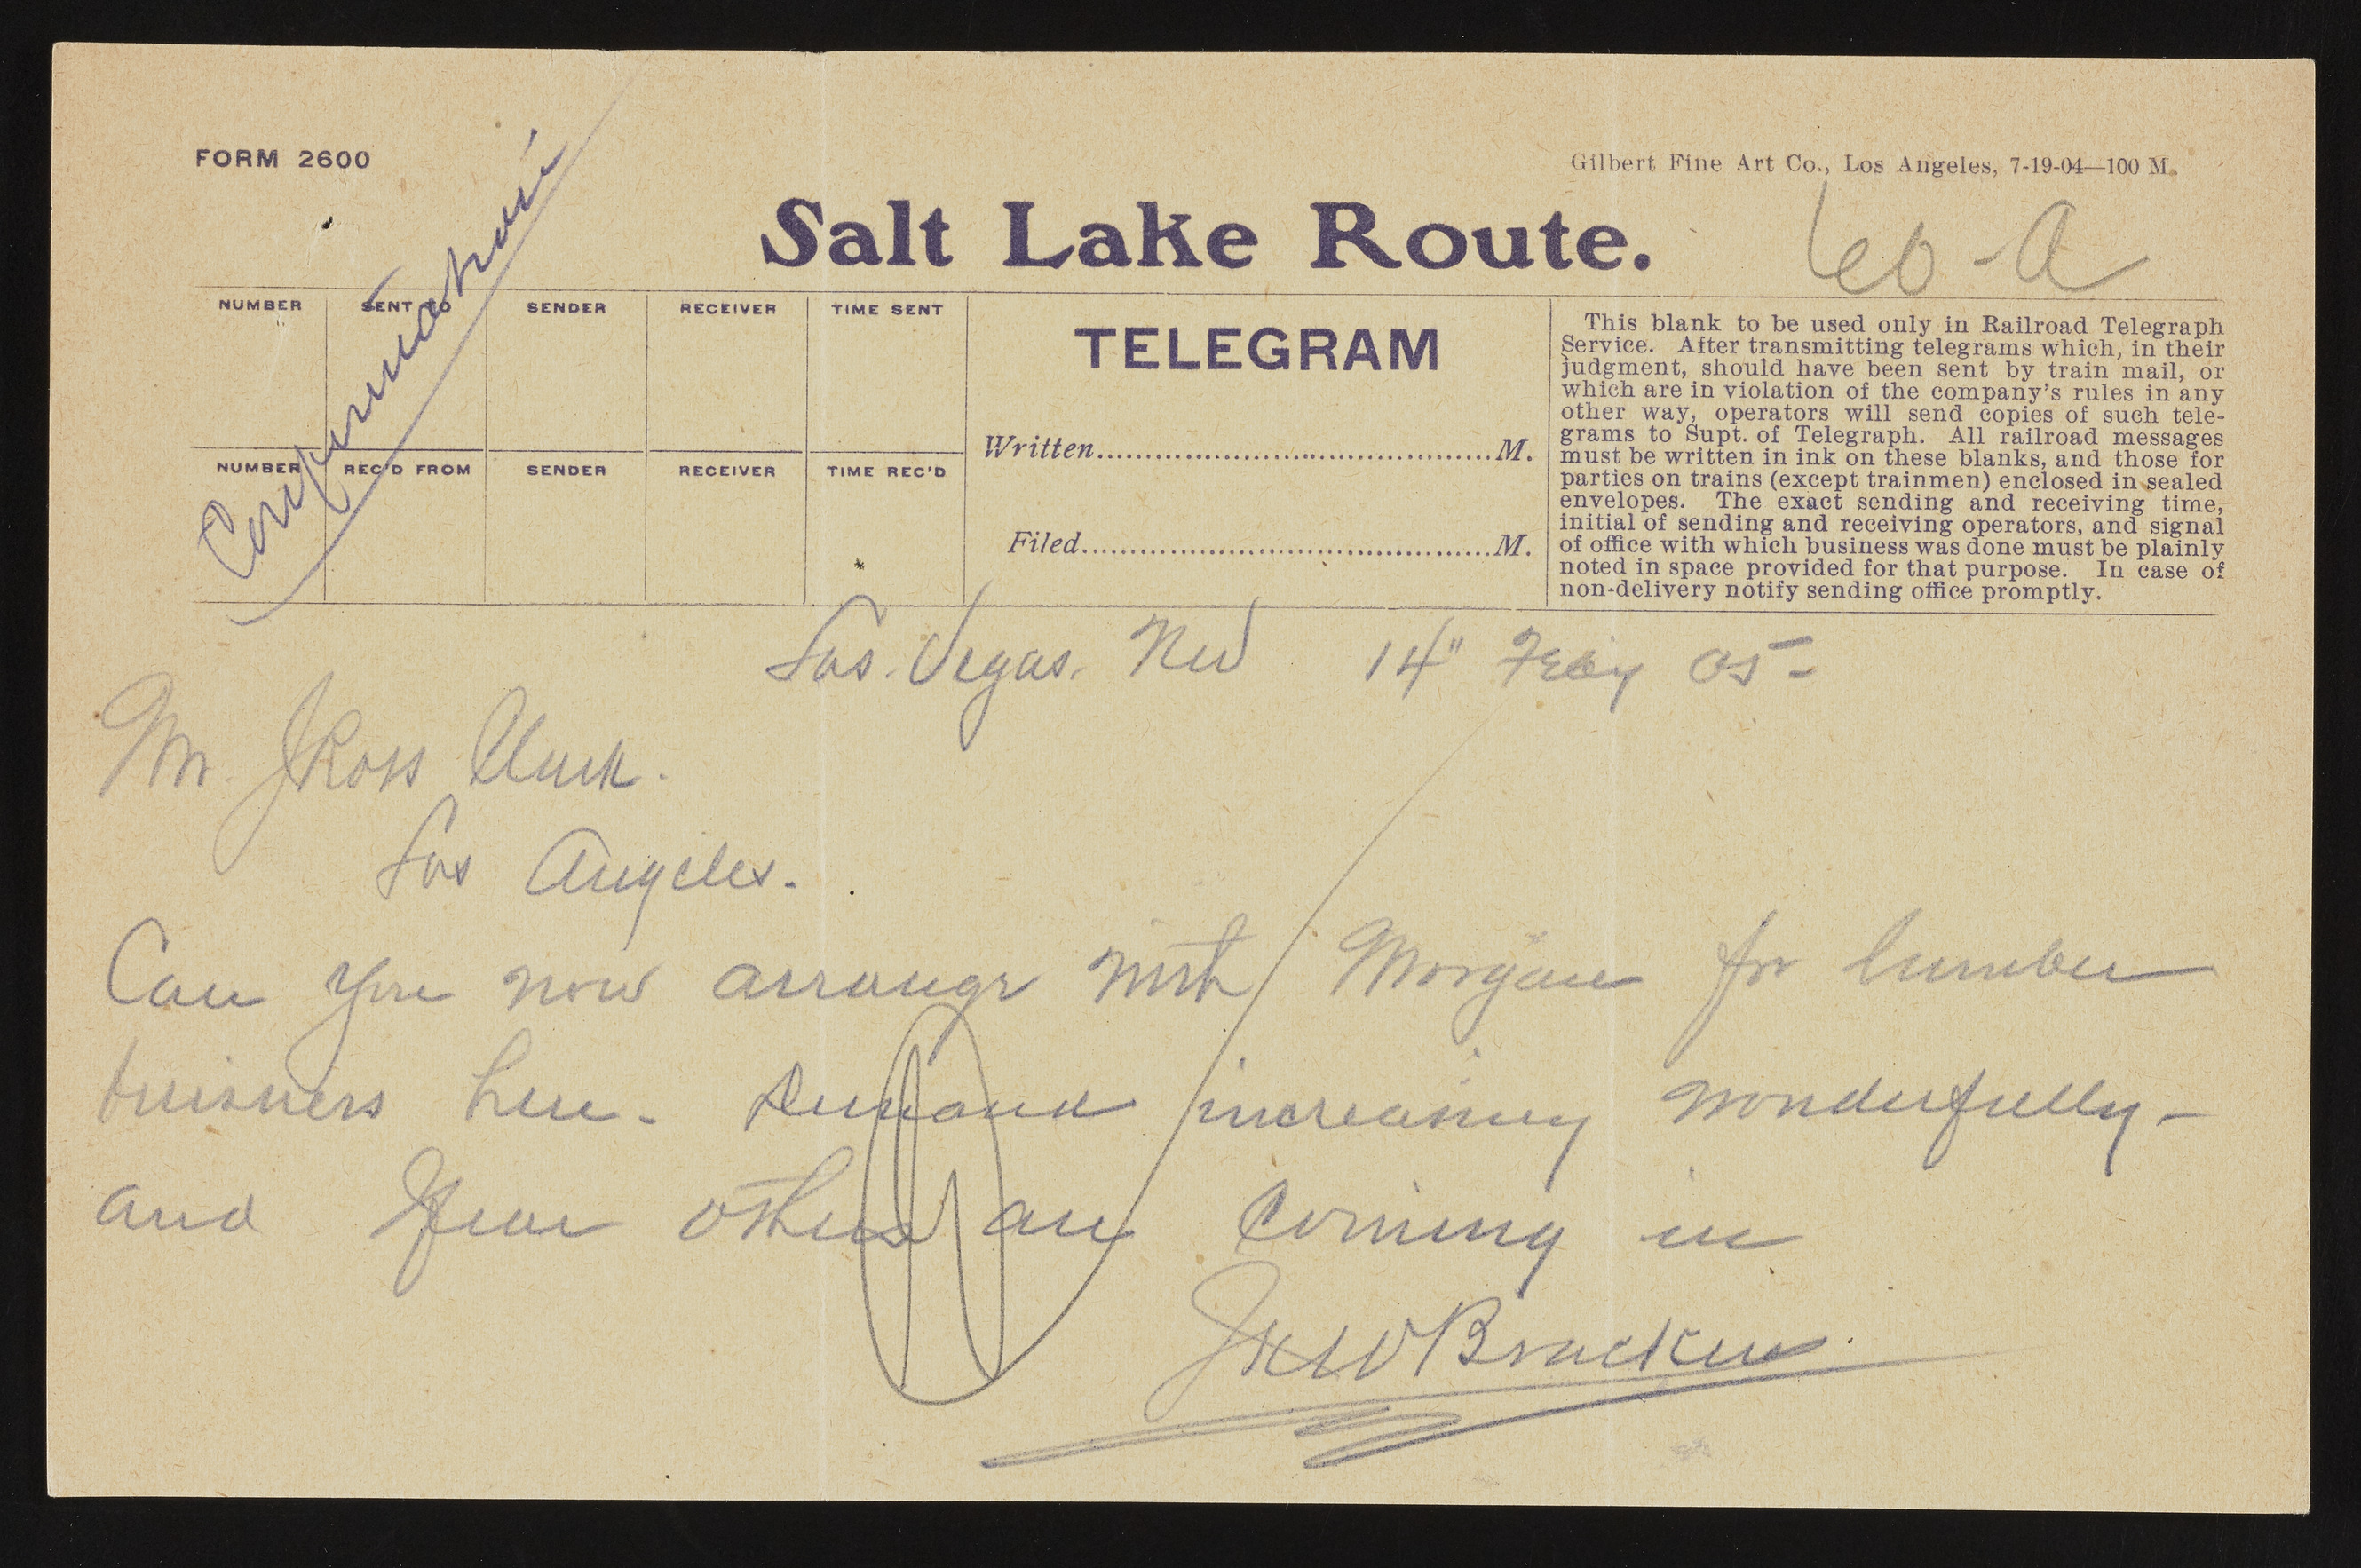 FORM 2600
Gilbert Fine Art Co., Los Angeles, 7-19-04—100 M.
Confirmation
Salt Lake Route.
60-a
NUMBER SENT TO SENDER RECEIVER TIME SENT
NUMBER REC'D FROM SENDER RECEIVER TIME REC'D
TELEGRAM
Written..........M.
Filed..........M.
This blank to be used only in Railroad Telegraph
Service. After transmitting telegrams which, in their
judgment, should have been sent by train mail, or
which are in violation of the company's rules in any
other way, operators will send copies of such tele-
grams to Supt. of Telegraph. All railroad messages
must be written in ink on these blanks, and those for
parties on trains (except trainmen) enclosed in sealed
envelopes. The exact sending and receiving time,
initial of sending and receiving operators, and signal
of office with which business was done must be plainly
noted in space provided for that purpose. In case of
non-delivery notify sending office promptly.
Las. Vegas. Nev 14" Feby 05-
Mr. J Ross Clark.
Los Angeles.
Can you now arrange with Morgan for lumber
business here. Demand increasing wonderfully-
and I fear others are coming in
Bracken